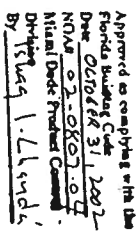 Approved as complying with the
Florida Building Code
Date OCTOBER 31, 2002
NOA# 02-0807.01
Miami Dade Product Control
Division
By